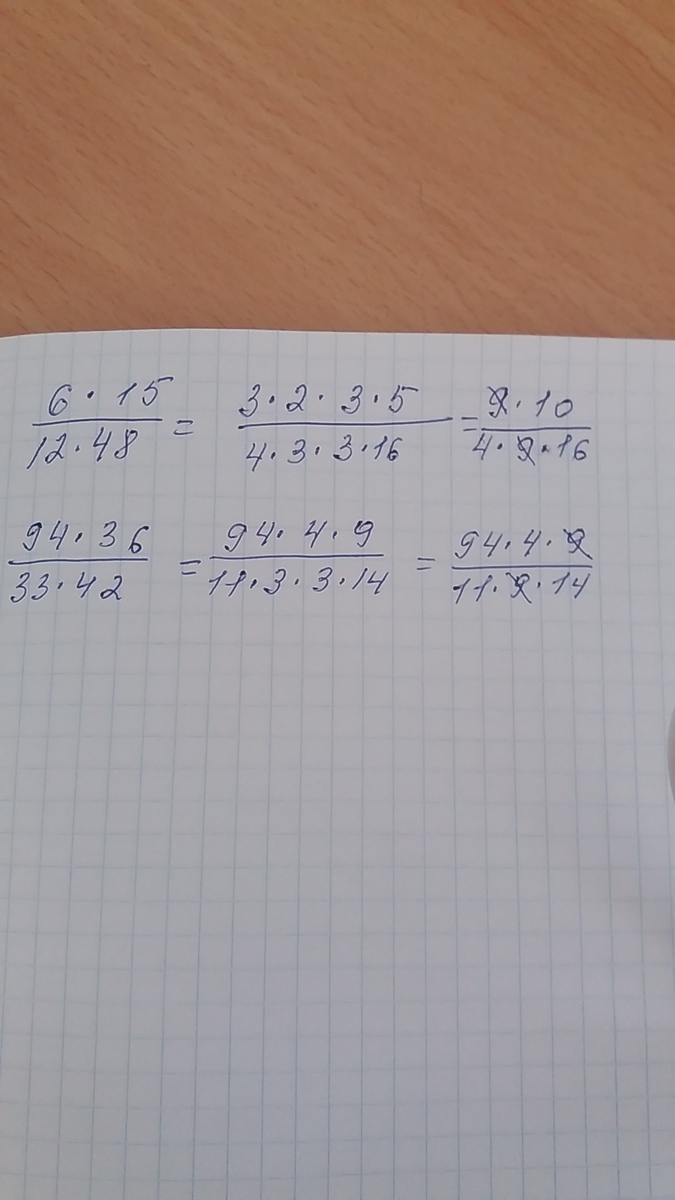 6 · 15 / 12 · 48 = 3 · 2 · 3 · 5 / 4 · 3 · 3 · 16 = 9 · 10 / 4 · 9 · 16
94 · 36 / 33 · 42 = 94 · 4 · 9 / 11 · 3 · 3 · 14 = 94 · 4 · 9 / 11 · 9 · 14